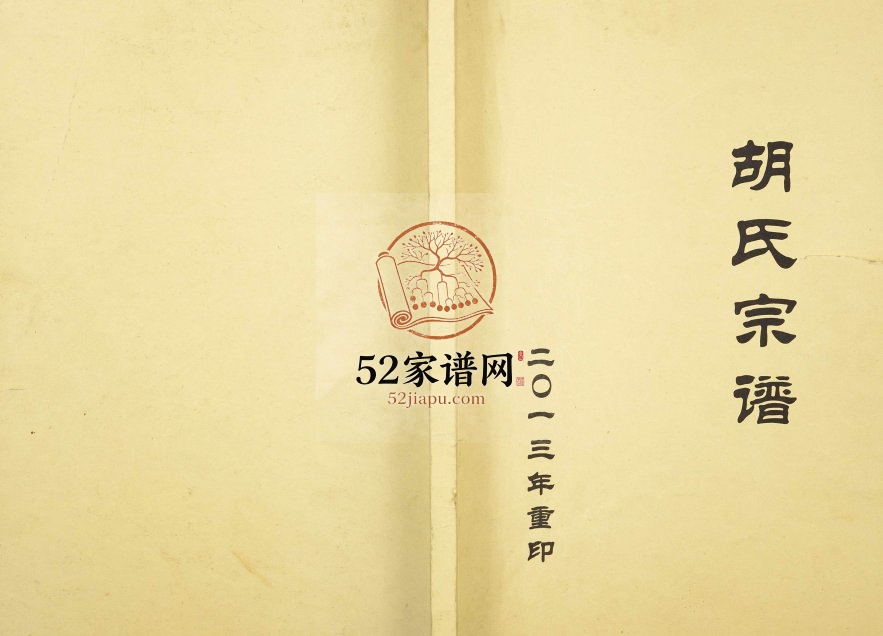 胡氏宗谱
二〇一三年重印
52家谱网
52jiapu.com